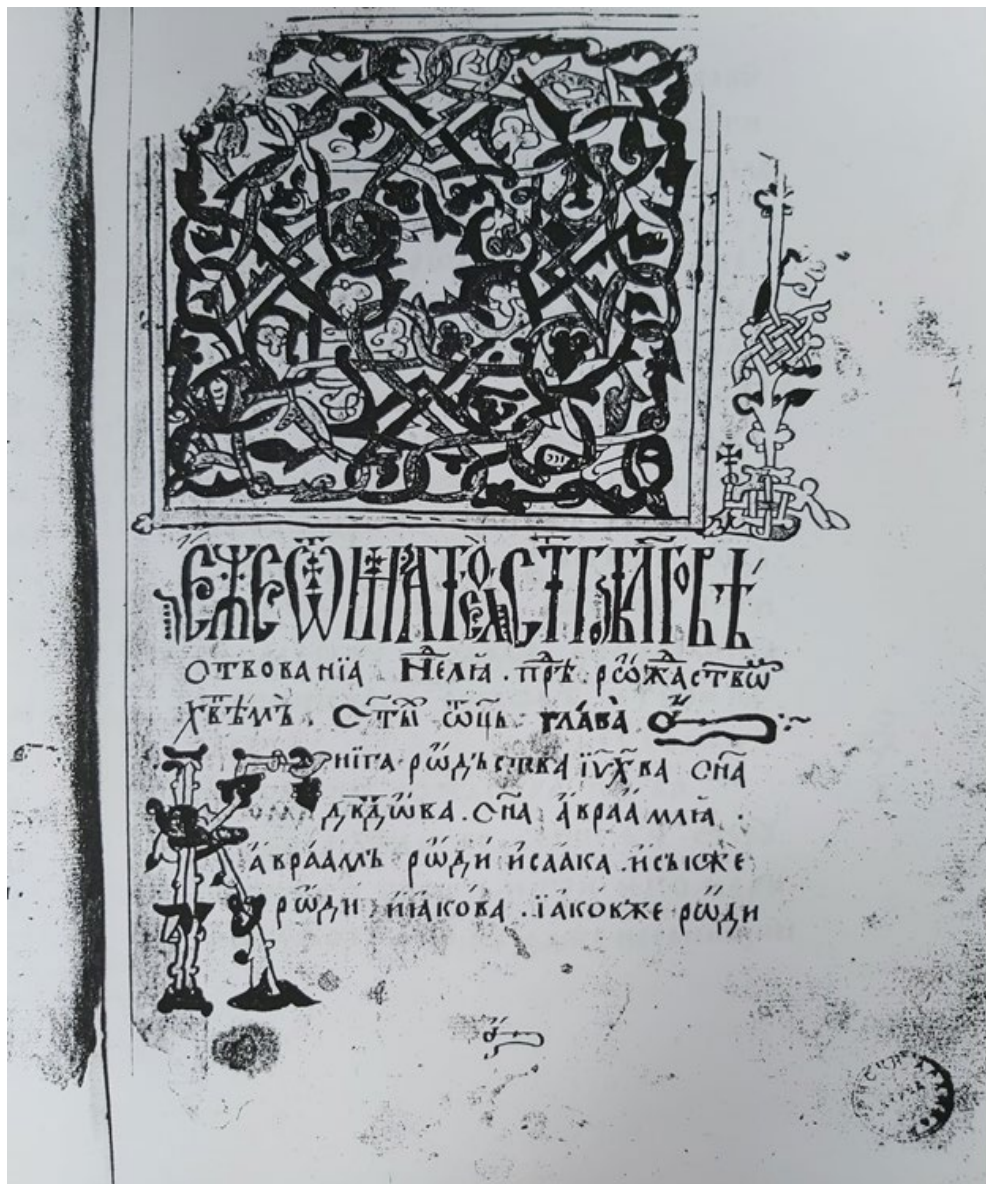 еже ѿ маⷮѳеа с҃тг҃ѡ бл҃говѣ
ствованїа Неⷣлꙗ . преⷣ рⷪжⷣаствѡⷨ
хв҃ѣмъ . с҃тыⷯ ѿц҃ь глава аⷹ
Книга рѡдьства їѵ҃х҃ва сн҃а
дв҃дѡва . сн҃а авраамлꙗ .
авраамъ рѡди исаака . исьⷦ҇же
рѡди иꙗкова . їаковже рѡди